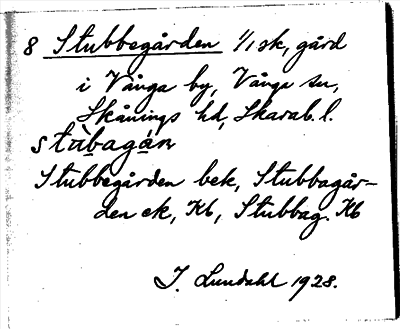 8 Stubbegården 1/1 sk, gård
i Vånga by, Vånga sn,
Skånings hd, Skarab. l.
stùbagán
Stubbegården bek, Stubbagår-
den ek, Kb, Stubbag. Kb
J. Lundahl 1928.